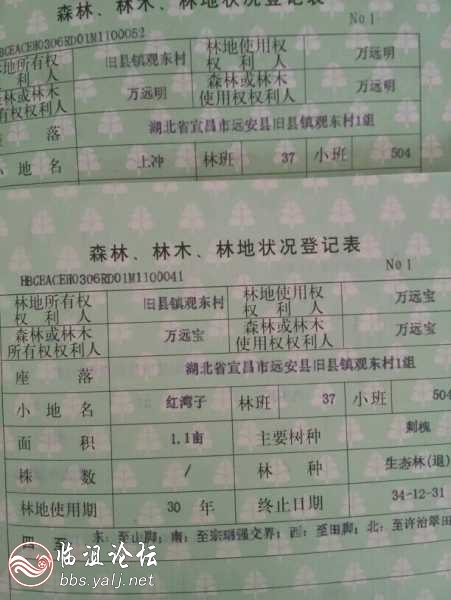 森林、林木、林地状况登记表
HBGEACEH0306RD01M1100052 No1
林地所有权权利人 旧县镇观东村 林地使用权权利人 万远明
森林或林木所有权权利人 万远明 森林或林木使用权权利人 万远明
座落 湖北省宜昌市远安县旧县镇观东村1组
小地名 上冲 林班 37 小班 504
森林、林木、林地状况登记表
HBGEACEH0306RD01M1100041 No1
林地所有权权利人 旧县镇观东村 林地使用权权利人 万远宝
森林或林木所有权权利人 万远宝 森林或林木使用权权利人 万远宝
座落 湖北省宜昌市远安县旧县镇观东村1组
小地名 红湾子 林班 37 小班 504
面积 1.1亩 主要树种 刺槐
株数 / 林种 生态林(退)
林地使用期 30年 终止日期 34-12-31
四至: 东:至山脚;南:至宗 强交界;西:至田脚;北:至许治翠田
临沮论坛
bbs.yalj.net